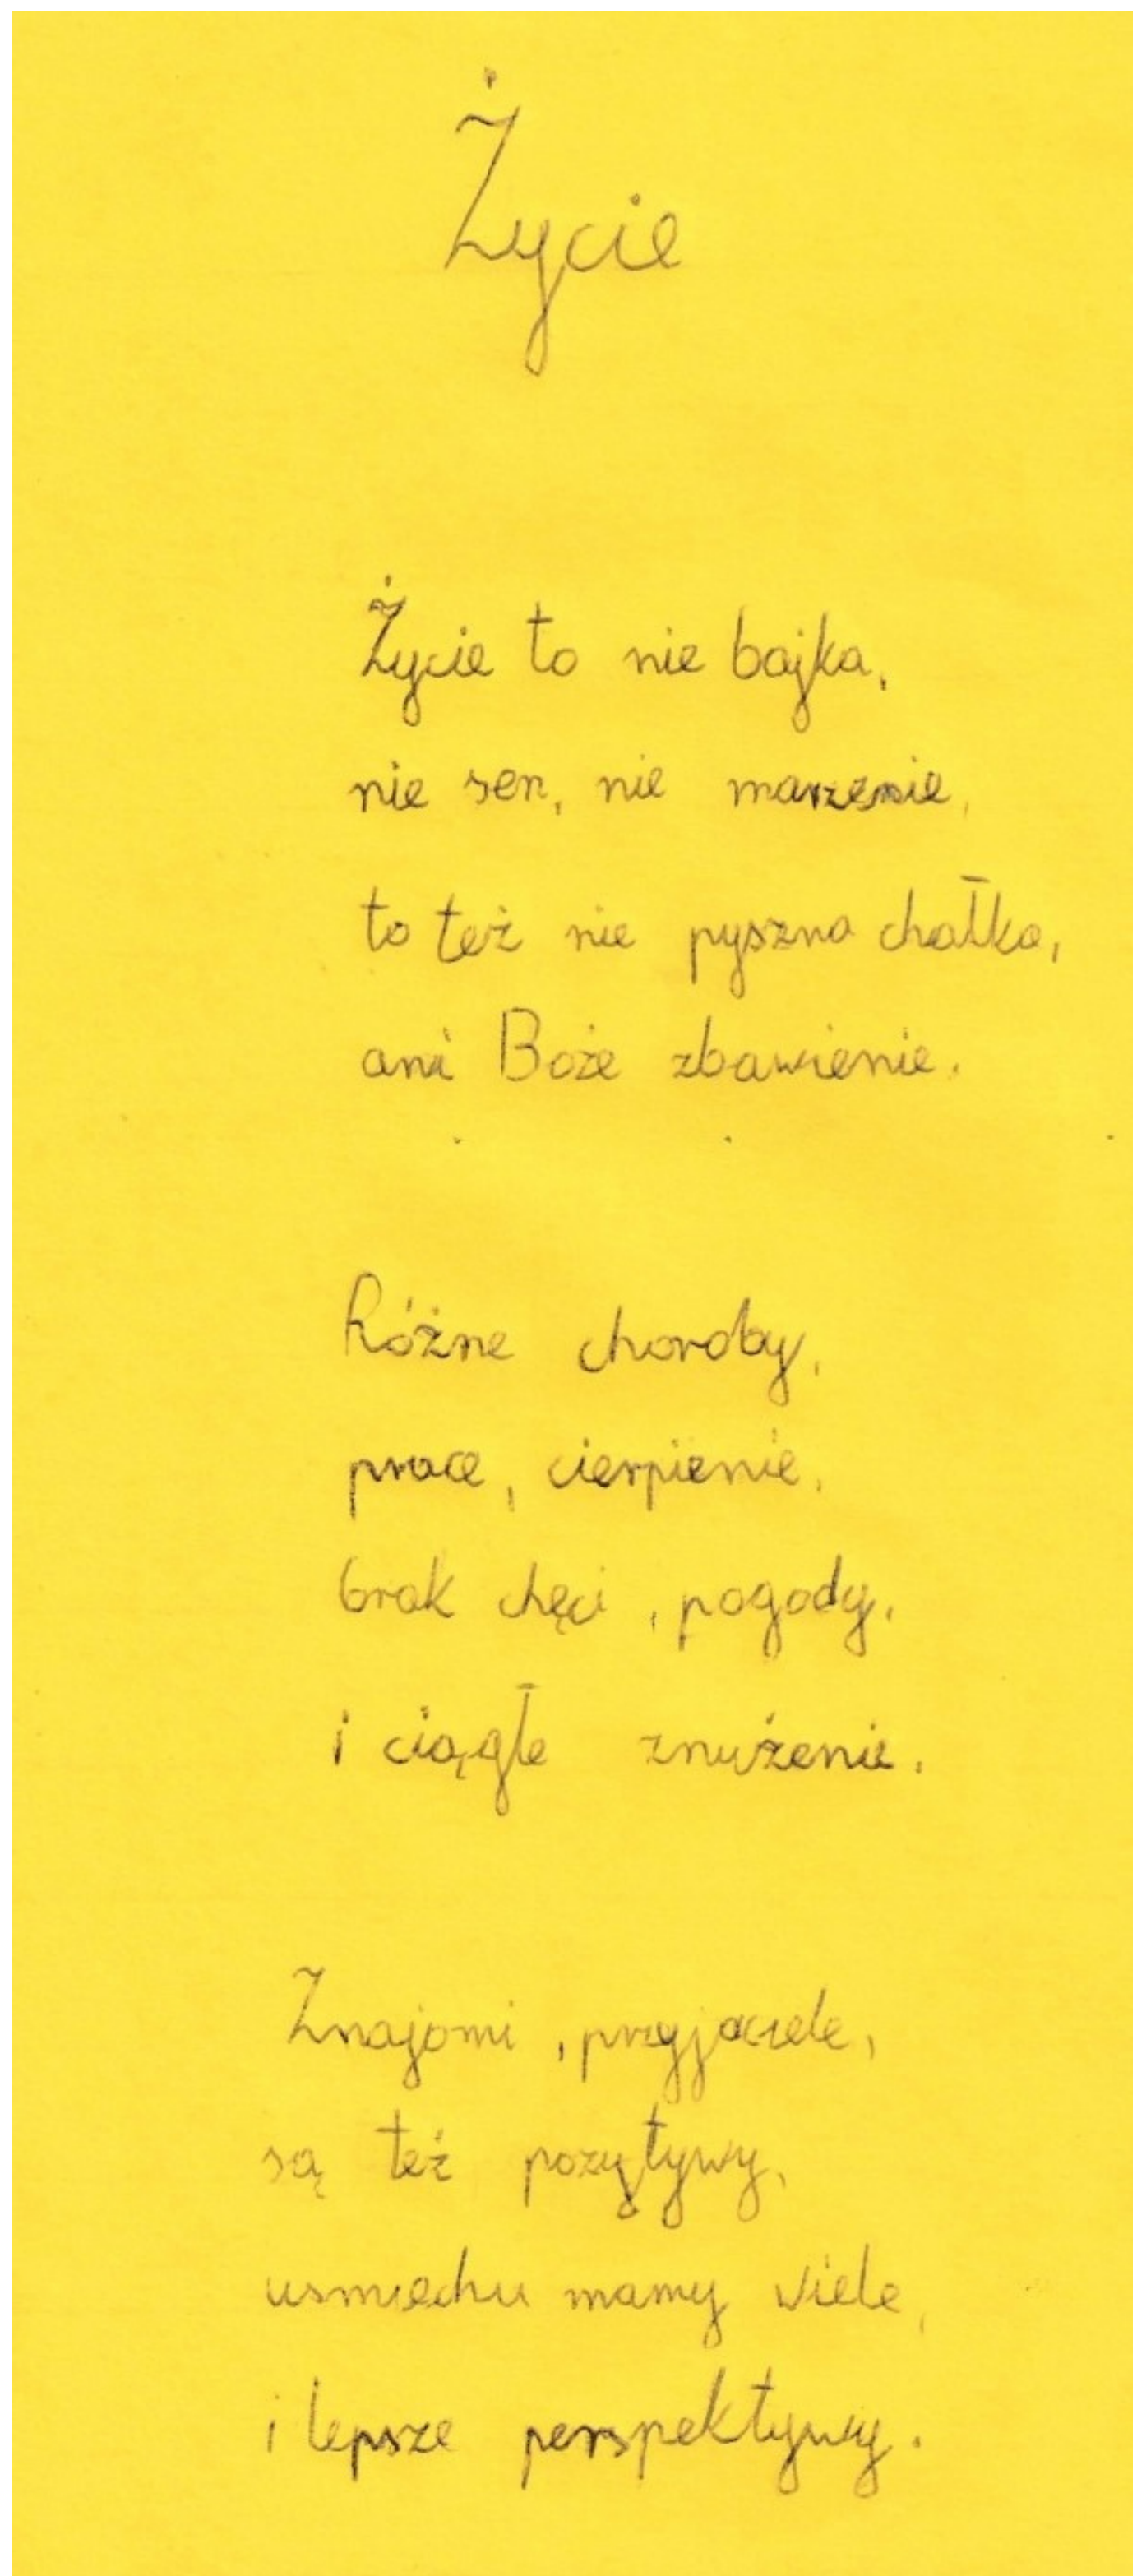 Życie
Życie to nie bajka,
nie sen, nie marzenie,
to też nie pyszna chałka,
ani Boże zbawienie.
Różne choroby,
prace, cierpienie,
brak chęci, pogody,
i ciągłe znużenie.
Znajomi, przyjaciele,
są też pozytywy,
usmiechu mamy wiele,
i lepsze perspektywy.